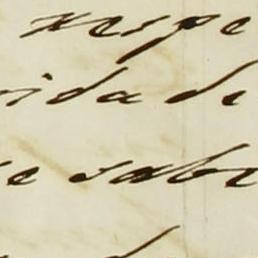 respe
vidade
e sabe